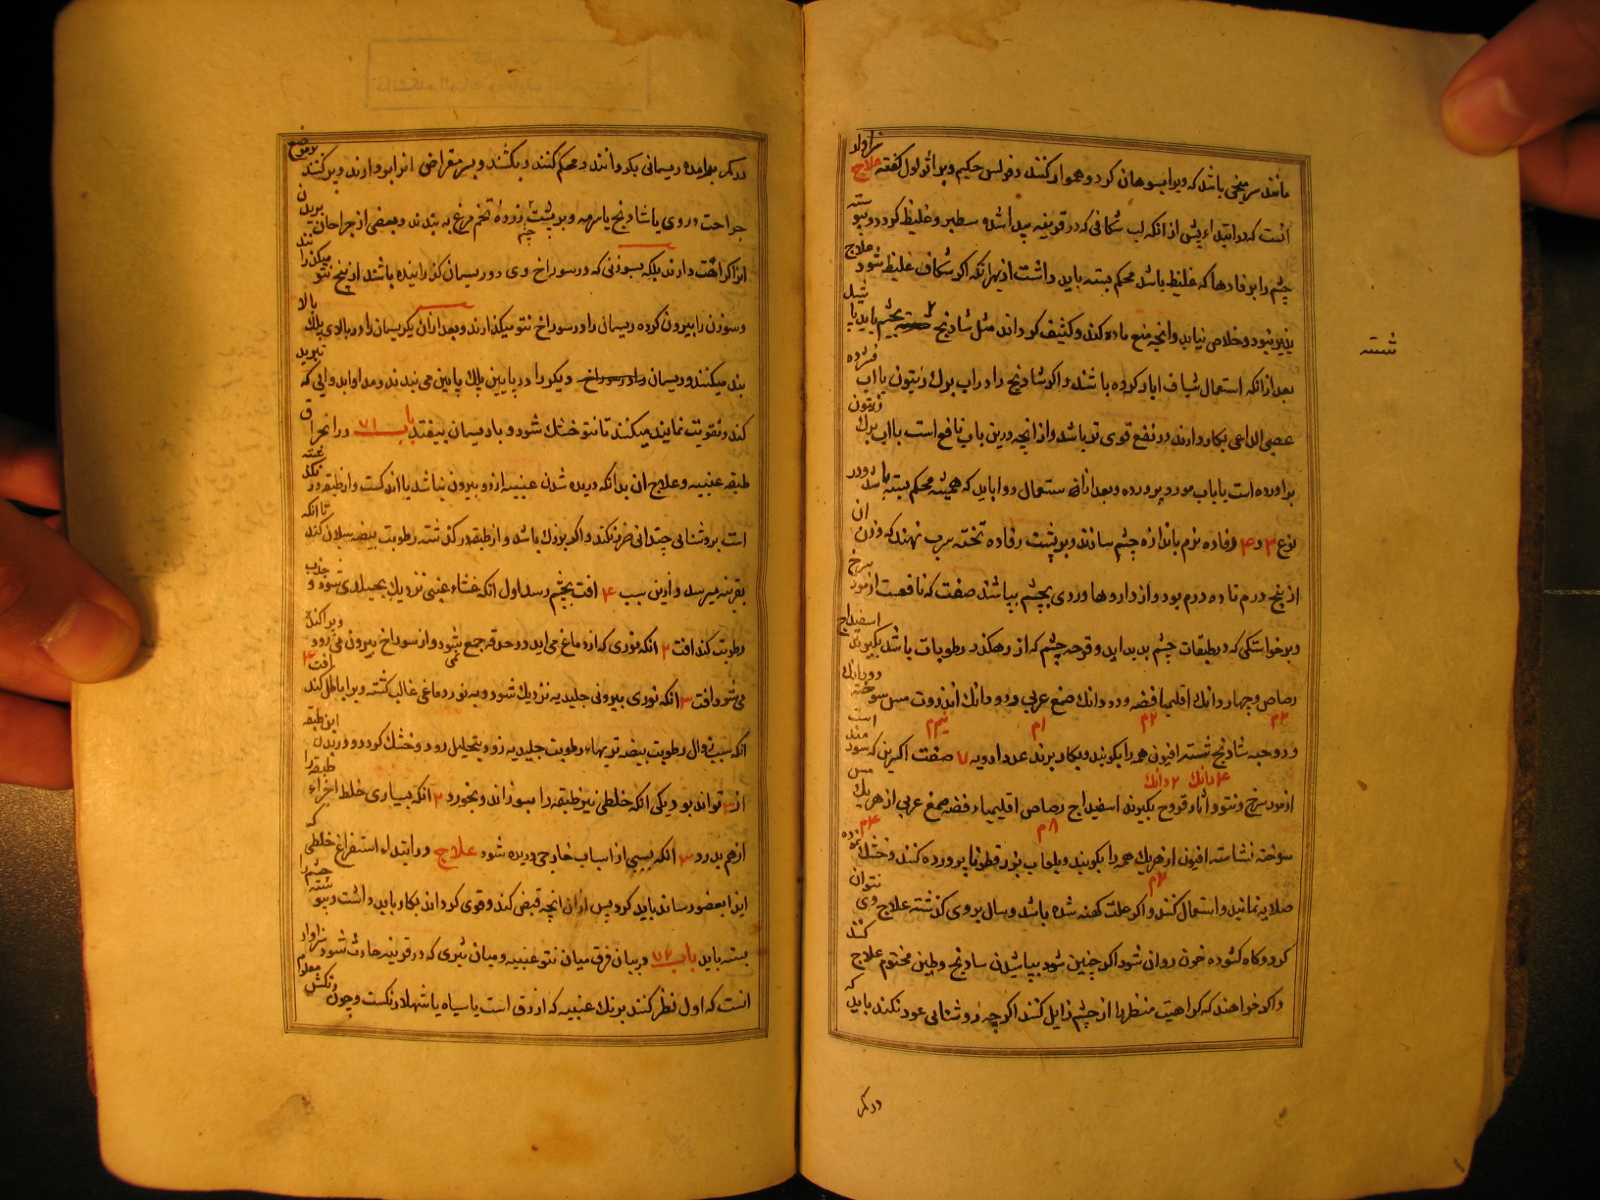 مانند سر میخی باشد که ویرا بسوهان کرده هموار کنند و فولس حکیم ویرا ثولول گفته علاج سزاوار
انست که در ابتداء پیش از انکه لب شکافی که در قرنیه پیدا شده سطبر و غلیظ کردد و نتو بسته
چشم را برفادها که غلیظ باشد محکم بسته باید داشت از بهر انکه اکر شکاف غلیظ شود علاج
پذیر نبود و خلاص نیابد و انچه منع ماده کند و کثیف کرداند مثل شادنج بچشم باید
شسته
بعد از انکه استعمال شیاف ابار کرده باشند و اکر شادنج را در اب برک زیتون یا اب فشرده
عصی الراعی بکار دارند در نفع قوی تر باشد و از انچه درین باب نافع است با اب برک زیتون
براورده است یا باب مورد پرورده و بعد از ان ستعمال دوا باید که همیشه محکم بسته
نوع ۳ و ۴ رفاده نرم باندازه چشم سازند و بر پشت رفاده تخته سرب نهند که وزن ان
از پنج درم تا ده درم بود و از داروها وردی بچشم بپاشند صفت که نافعست از مود سرخ
و برخواستکی که در طبقات چشم پدید اید و قرحه چشم که از رهکذر رطوبات باشد بکیرند اسفیداج
رصاص و چهار دانک اقلیمیا فضه و دو دانک صمغ عربی و دو دانک انزروت مس سوخته دو دانک
۲م ۲م ۱م نیم م
و دو حبه شادنج شسته افیون همه را بکوبند و بکار برند عدد ادویه ۷ صفت اکسیرین که سود مند است
۴ دانک ۲ دانک
از مود سرخ و نتو و اثار قروح بکیرند اسفیداج رصاص اقلیمیاء فضه صمغ عربی از هریک مس
۸م ۴م
سوخته نشاسته افیون از هریک همه را بکوبند و بلعاب بزر قطونا پرورده کنند و خشک نموده
۲م
صلایه نمایند و استعمال کنند و اکر علت کهنه شده باشد و سال بر وی کذشته علاج وی نتوان
کرد و کاه کشوده خون روان شود اکر چنین شود بپاشیدن شادنج و طین مختوم علاج کنند
و اکر خواهند که کراهیت منظر را از چشم زایل کنند اکر چه روشنایی عود نکند باید که
ودیکر
ودیکر بهم امده ریسمانی بکردانند و محکم کنند و بکشند و بسر مقراضی انرا بردارند و بر کنند بر موضع
جراحت ذروری یا شادنج یا سرمه و بر پشت چشم زرده تخم مرغ به بندند و بعضی از جراحان بریدن
انرا کراهت دارند بلکه بسوزنی که در سوراخ وی دو ریسمان کذرانیده باشند از بیخ نتو میکذرانند
و سوزن را بیرون کرده ریسمانی را در سوراخ نتو میکذارند و بعد از ان یک ریسمان را در بالای پلک بالا
بند میکنند و ریسمان دیکر را در پایین پلک پایین می بندند و مداوا بدوایی که تبرید
کند و تقویت نماید میکنند تا نتو خشک شود و با ریسمان بیفتد باب ۷۱ در انخراق
طبقه عنبیه و علاج ان بدانکه دریده شدن عنبیه از دو بیرون نباشد یا اندکست و از طبقه در نکذشته
است بروشنایی چندانی ضرر نکند و اکر بزرک باشد و از طبقه در کذشته رطوبت بیضه سیلان کند تا انکه
بقرنیه میرسد و ازین سبب ۴ افت بچشم رسد اول انکه غشاء عنبی نزدیک بجلیدی شود و جذب
رطوبت کند افت ۲ انکه نوری که از دماغ می اید در حدقه جمع نمی شود و از سوراخ بیرون می رود و پراکنده
می شود افت ۳ انکه نوری بیرونی جلیدیه نزدیک شود و به نور دماغی غالب کشته ویرا باطل کند افت ۴
انکه بسبب زوال رطوبت بیضه تریهاء رطوبت جلیدیه زود بتحلیل رود و خشک کردد و دریدن این طبقه
از ۳ تواند بود یکی انکه خلطی تیز طبقه را بسوزاند و بخورد ۲ انکه بسیاری خلط اجزاء طبقه را
از هم بدرد ۳ انکه بسببی از اسباب خارجی دریده شود علاج در ابتداء استفراغ خلطی که
ایذا بعضو رساند باید کرد پس از ان انچه قبض کند و قوی کرداند بکار باید داشت و چشم را
بسته باید باب ۷۲ در بیان فرق میان نتو عنبیه و میان بثری که در قرنیه حادث شود سزاوار
انست که اول نظر کنند برنک عنبیه که ازرق است یا سیاه یا شهلا رنکست و چون رنکش معلوم